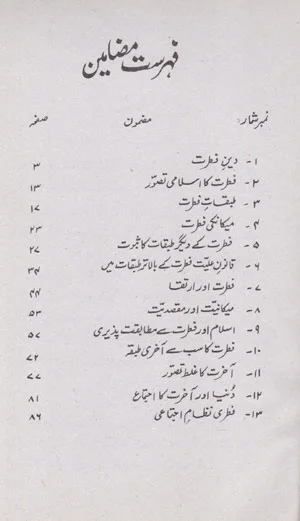 فہرست مضامین
نمبر شمار: مضمون صفحہ
۱- دینِ فطرت ۳
۲- فطرت کا اسلامی تصوّر ۱۳
۳- طبقاتِ فطرت ۱۷
۴- میکانکی فطرت ۲۳
۵- فطرت کے دیگر طبقات کا ثبوت ۲۷
۶- قانونِ علیّت فطرت کے بالاتر طبقات میں ۳۴
۷- فطرت اور ارتقا ۴۴
۸- میکانیّت اور مقصدیّت ۵۳
۹- اسلام اور فطرت سے مطابقت پذیری ۵۷
۱۰- فطرت کا سب سے آخری طبقہ ۷۲
۱۱- آخرت کا غلط تصوّر ۷۷
۱۲- دُنیا اور آخرت کا اجتماع ۸۱
۱۳- فطری نظامِ اجتماعی ۸۶